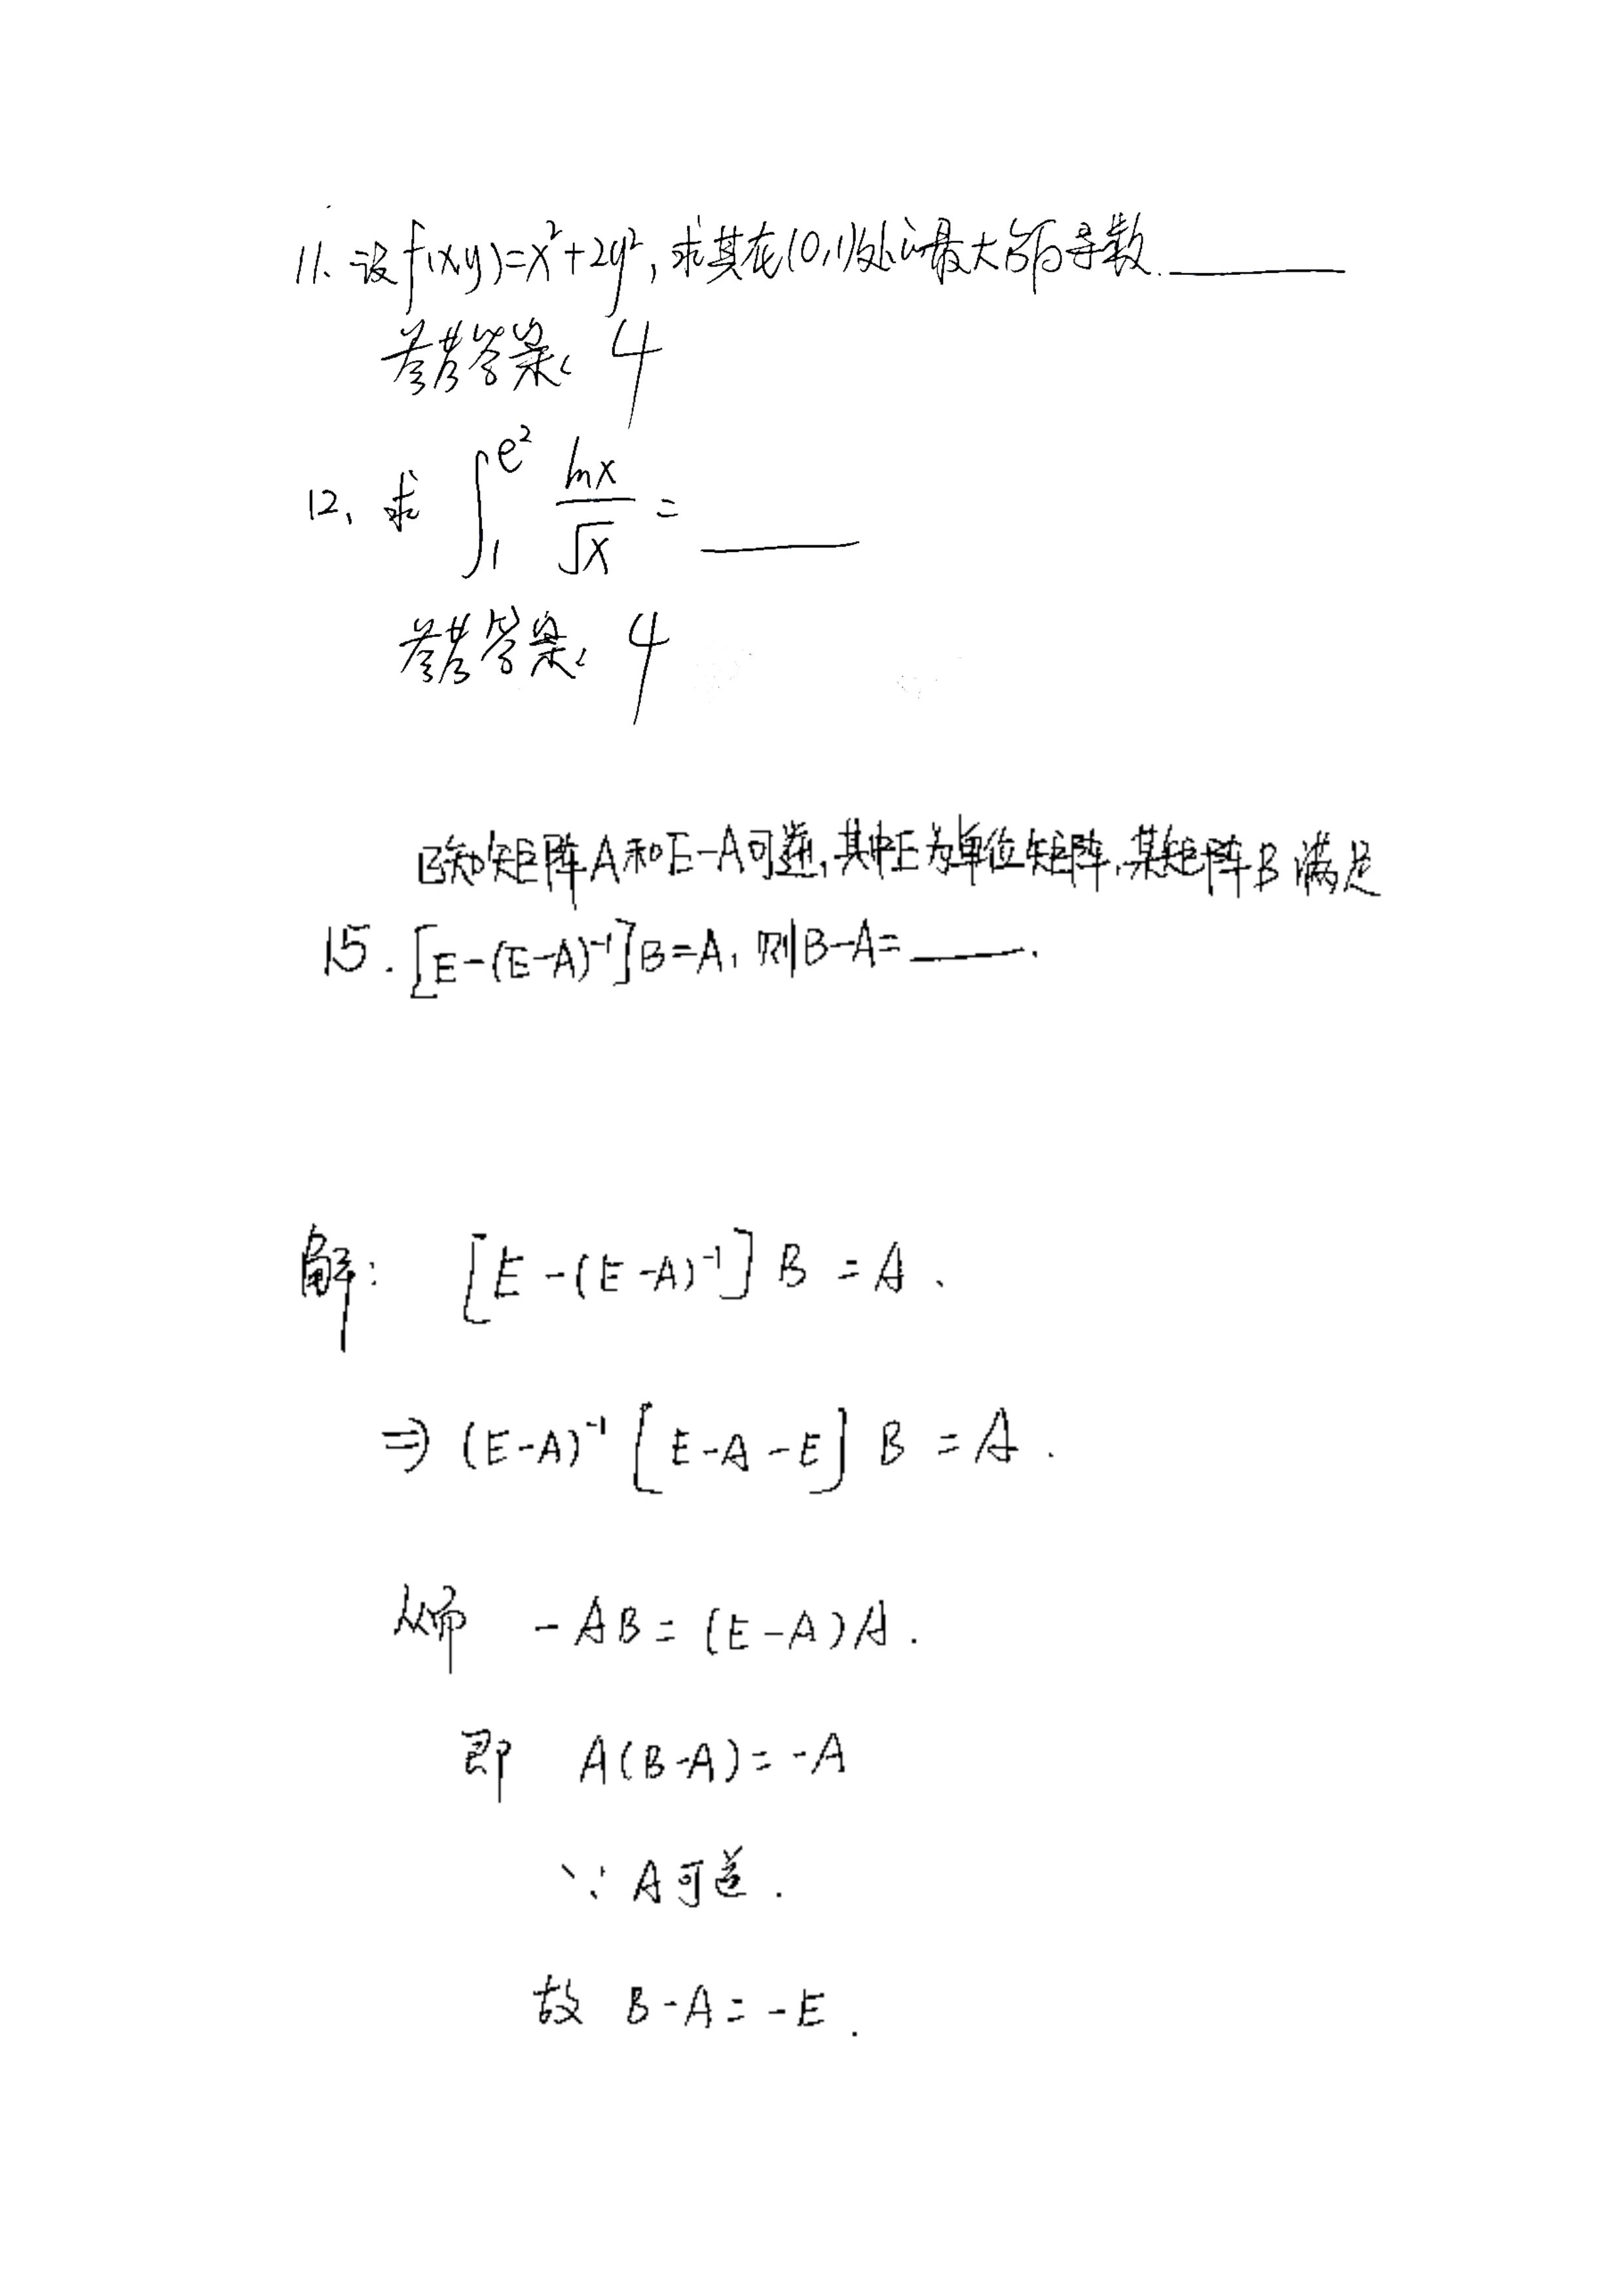 11. 设f(x,y)=x²+2y², 求其在(0,1)处的最大方向导数.______
参考答案: 4
12. 求 ∫₁^{e²} lnx/√x = ______
参考答案: 4
已知矩阵A和E-A可逆,其中E为单位矩阵,某矩阵B满足
15. [E-(E-A)⁻¹]B=A, 则B-A=______.
解: [E-(E-A)⁻¹]B=A、
⇒ (E-A)⁻¹[E-A-E]B=A.
从而 -AB=(E-A)A.
即 A(B-A)=-A
∵ A可逆.
故 B-A=-E.